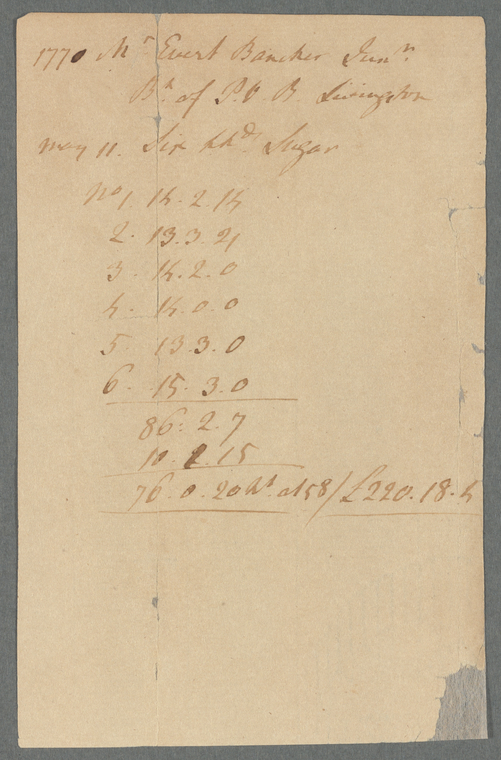 1770 Mr Evert Bancker Junr.
Bt. of P. V B. Livingston
May 11. Six hhds Sugar
No 1. 14. 2. 14
2. 13. 3. 21
3. 14. 2. 0
4. 14. 0. 0
5. 13 3. 0
6. 15. 3. 0
86. 2. 7
10. 1. 15
76. 0. 20 Nt. at 58/ £220. 18. 4